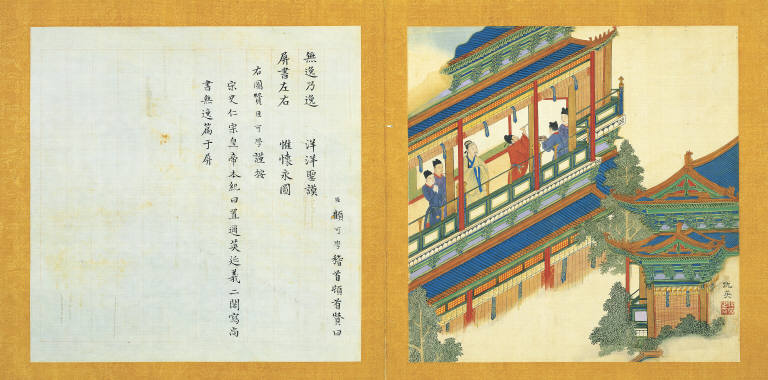 臣顧可學稽首頓首贊曰
無逸乃逸 洋洋聖謨
屏書左右 惟懷永圖
右圖贊臣可學謹按
宋史仁宗皇帝本紀曰置邇英延義二閣寫尚
書無逸篇于屏
英